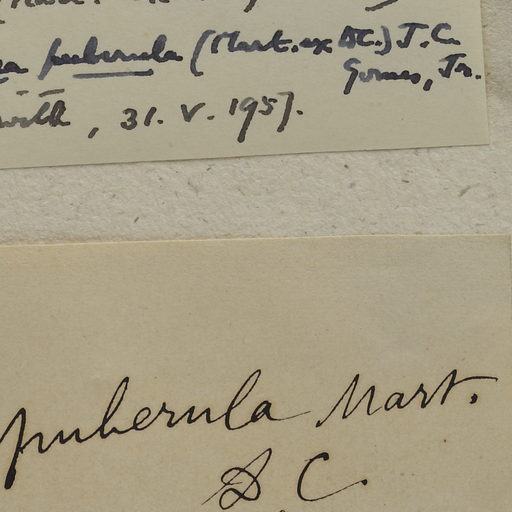 puberula (Mart. ex DC.) J.C.
Gomes, Jr.
with, 31. V. 1957.
puberula Mart.
DC